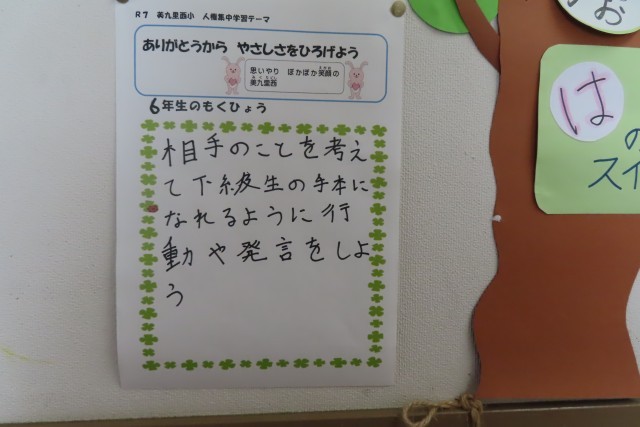 R7 美九里西小 人権集中学習テーマ
ありがとうから やさしさをひろげよう
思いやり ぽかぽか笑顔の
美九里西
6年生のもくひょう
相手のことを考え
て下級生の手本に
なれるように行
動や発言をしよ
う
お
は
の
スイ